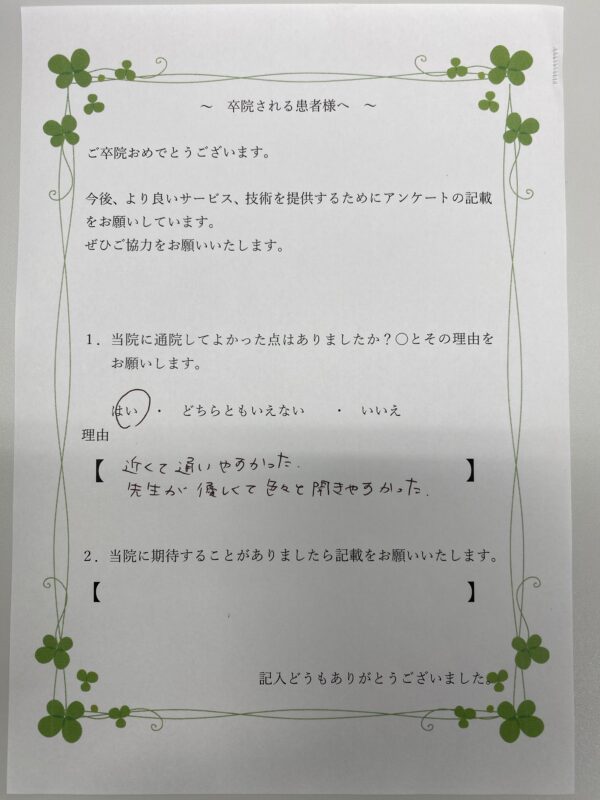 ～ 卒院される患者様へ ～
ご卒院おめでとうございます。
今後、より良いサービス、技術を提供するためにアンケートの記載
をお願いしています。
ぜひご協力をお願いいたします。
１．当院に通院してよかった点はありましたか？〇とその理由を
お願いします。
はい ・ どちらともいえない ・ いいえ
理由
【 近くて通いやすかった。
先生が優しくて色々と聞きやすかった。 】
２．当院に期待することがありましたら記載をお願いいたします。
【 】
記入どうもありがとうございました。